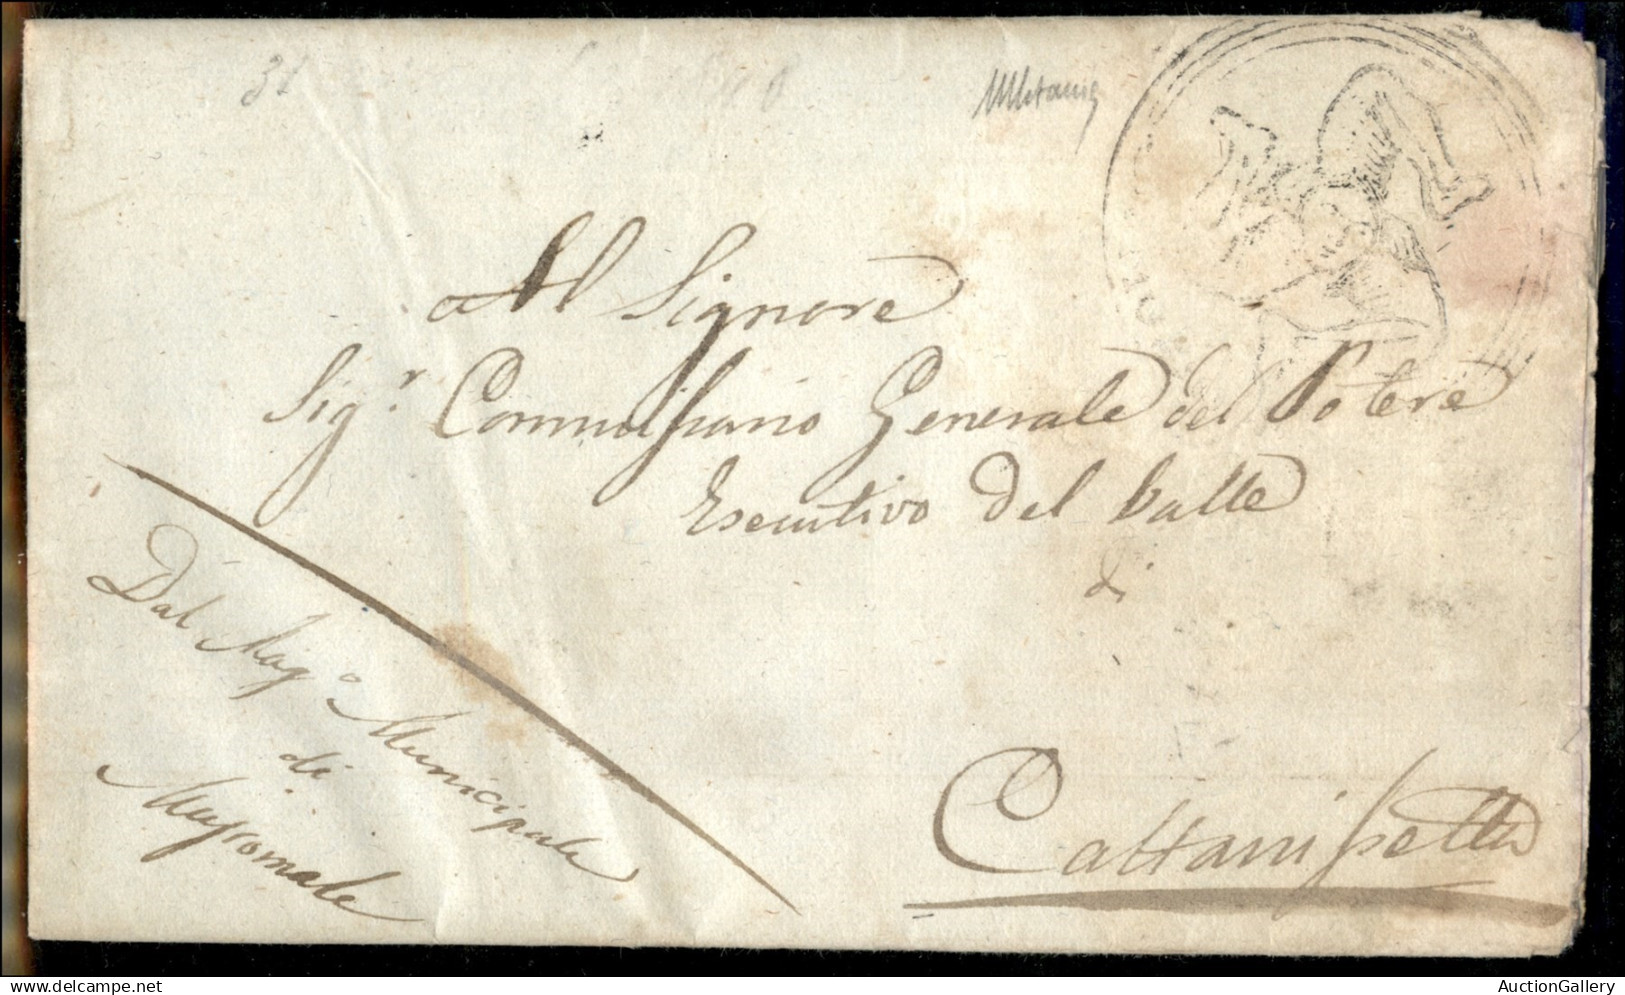 31
Al Signore
Sig.r Commissario Generale del Potere
Esecutivo del Valle
di
Cattanissetta
Dal Mag.o Municipale
di
Mussomele
AuctionGallery